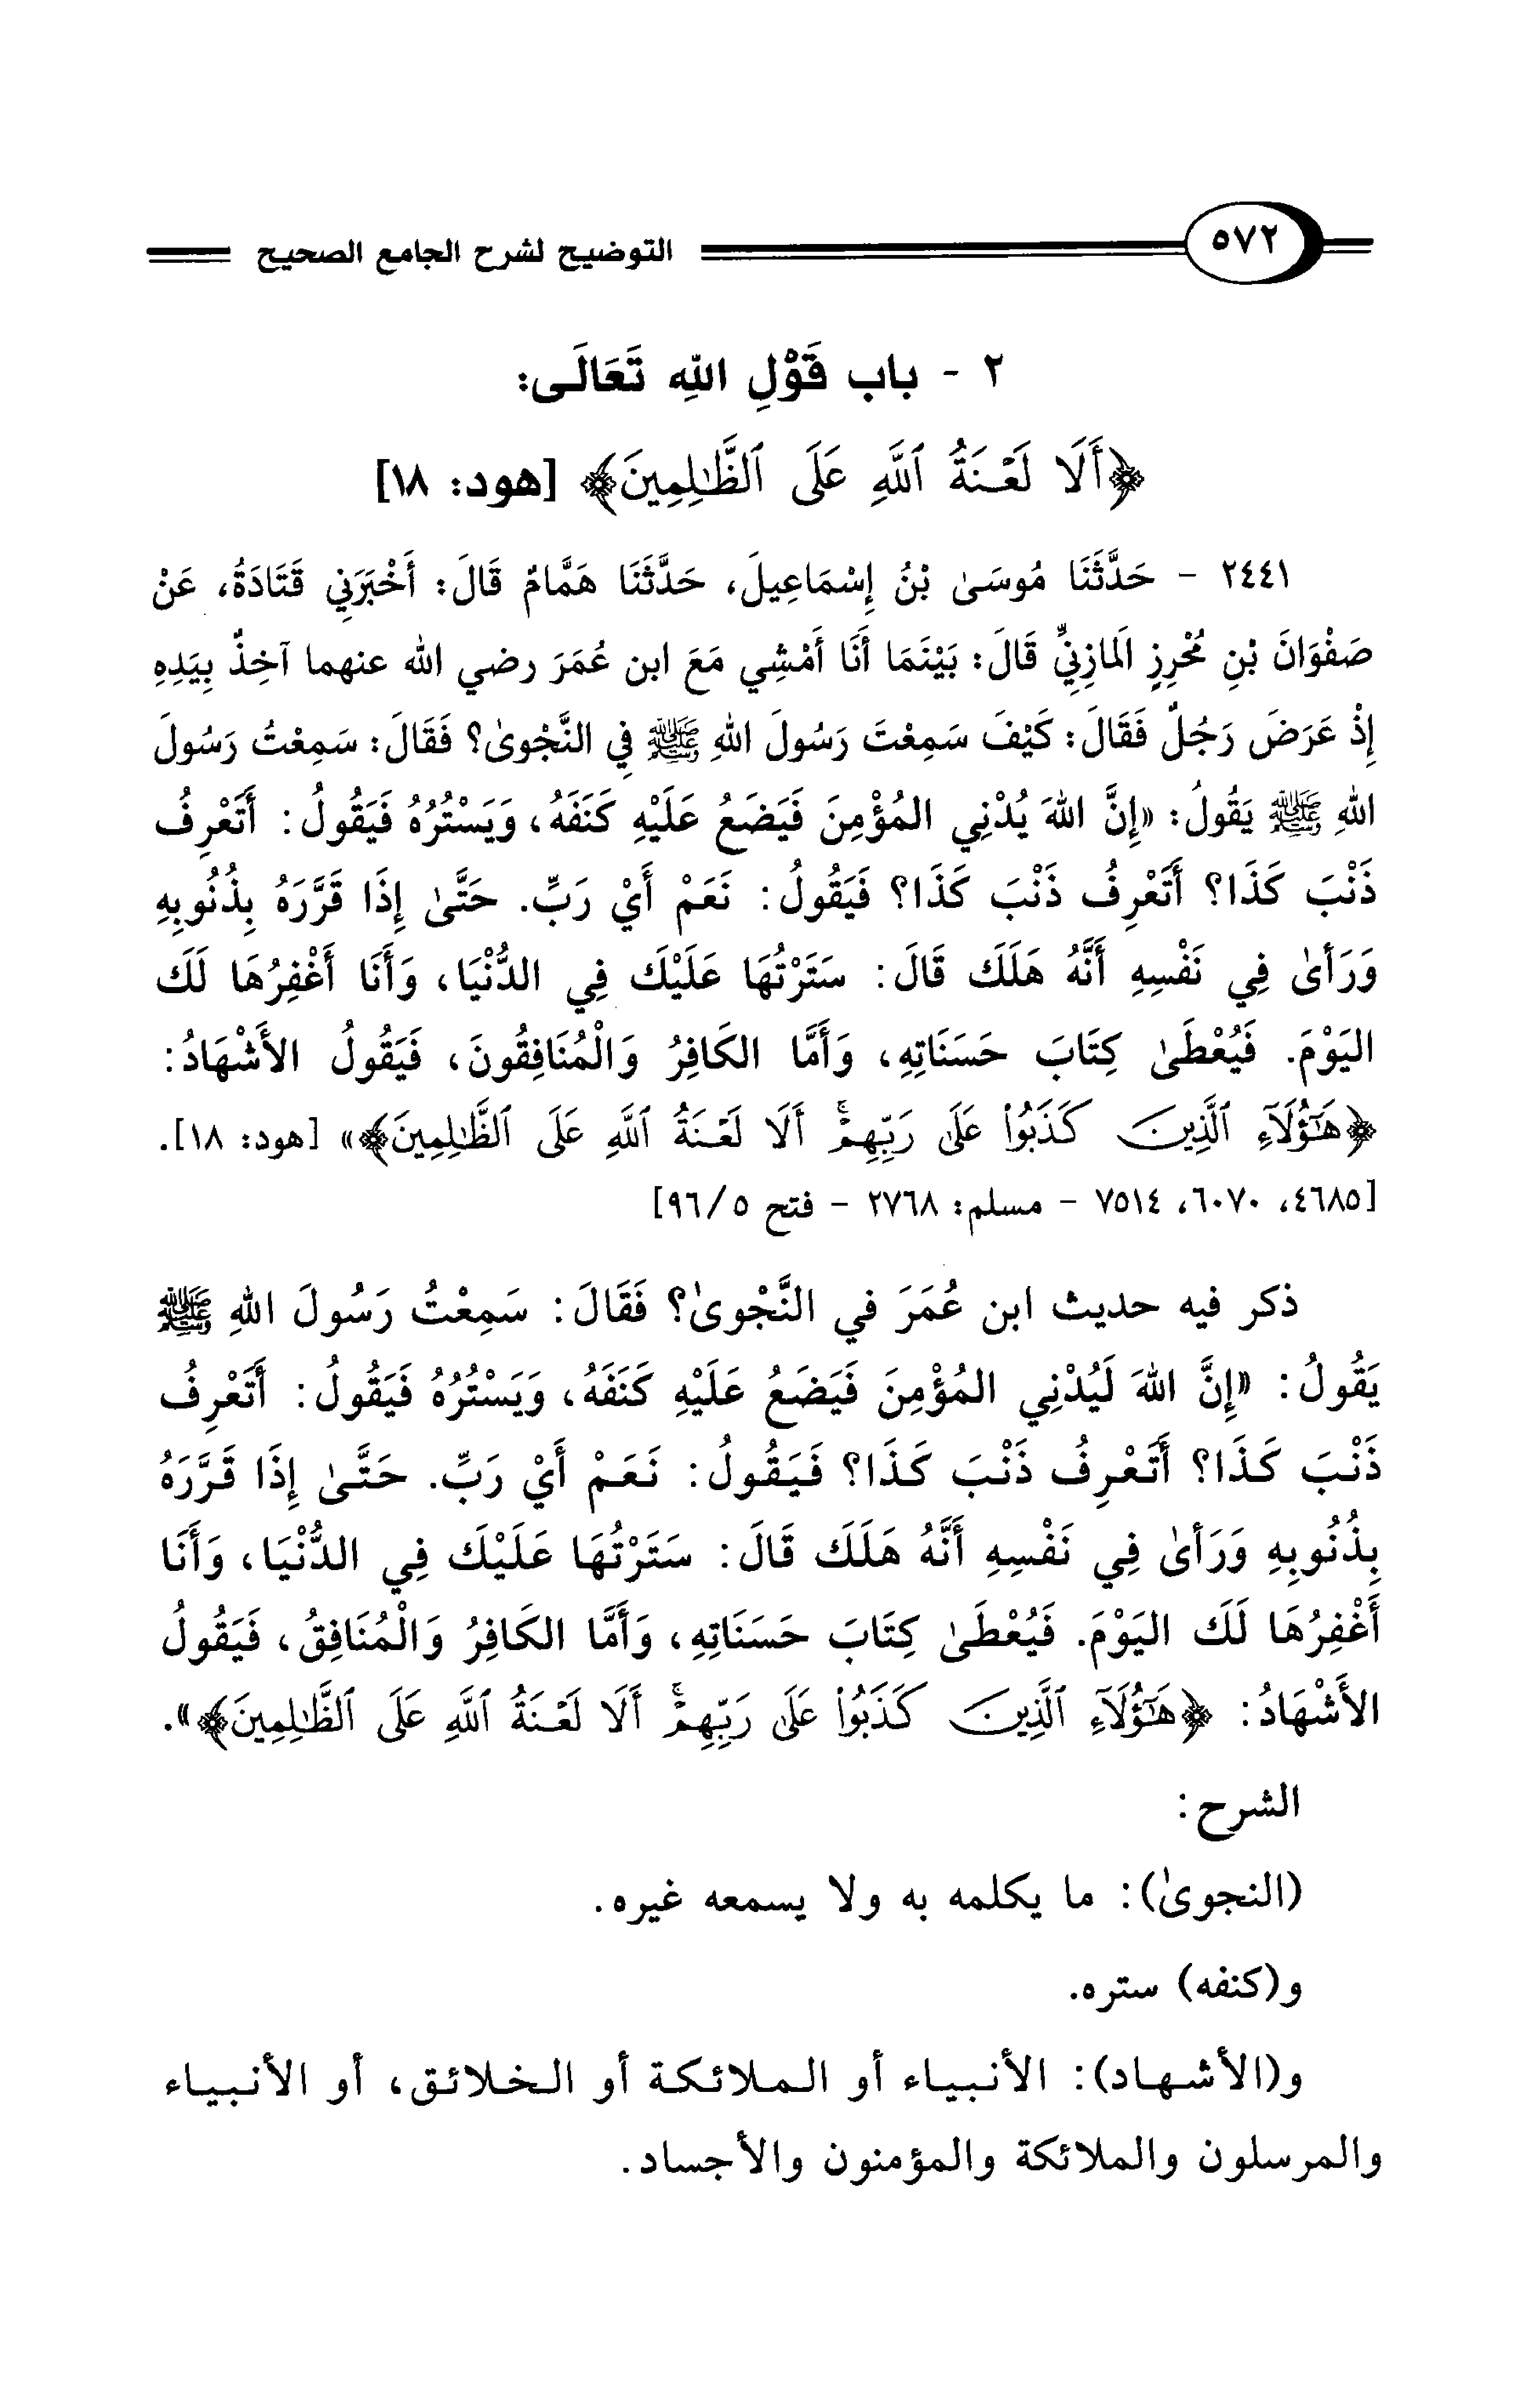 ٥٧٢ التوضيح لشرح الجامع الصحيح
٢ - باب قَوْلِ اللهِ تَعَالَى:
﴿أَلَا لَعْنَةُ ٱللَّهِ عَلَى ٱلظَّٰلِمِينَ﴾ [هود: ١٨]
٢٤٤١ - حَدَّثَنَا مُوسَىٰ بْنُ إِسْمَاعِيلَ، حَدَّثَنَا هَمَّامٌ قَالَ: أَخْبَرَنِي قَتَادَةُ، عَنْ
صَفْوَانَ بْنِ مُحْرِزٍ المَازِنِيِّ قَالَ: بَيْنَمَا أَنَا أَمْشِي مَعَ ابن عُمَرَ رضي الله عنهما آخِذٌ بِيَدِهِ
إِذْ عَرَضَ رَجُلٌ فَقَالَ: كَيْفَ سَمِعْتَ رَسُولَ اللهِ ﷺ فِي النَّجْوىٰ؟ فَقَالَ: سَمِعْتُ رَسُولَ
اللهِ ﷺ يَقُولُ: «إِنَّ اللهَ يُدْنِي المُؤْمِنَ فَيَضَعُ عَلَيْهِ كَنَفَهُ، وَيَسْتُرُهُ فَيَقُولُ: أَتَعْرِفُ
ذَنْبَ كَذَا؟ أَتَعْرِفُ ذَنْبَ كَذَا؟ فَيَقُولُ: نَعَمْ أَيْ رَبِّ. حَتَّىٰ إِذَا قَرَّرَهُ بِذُنُوبِهِ
وَرَأىٰ فِي نَفْسِهِ أَنَّهُ هَلَكَ قَالَ: سَتَرْتُهَا عَلَيْكَ فِي الدُّنْيَا، وَأَنَا أَغْفِرُهَا لَكَ
اليَوْمَ. فَيُعْطَىٰ كِتَابَ حَسَنَاتِهِ، وَأَمَّا الكَافِرُ وَالْمُنَافِقُونَ، فَيَقُولُ الأَشْهَادُ:
﴿هَٰٓؤُلَآءِ ٱلَّذِينَ كَذَبُوا۟ عَلَىٰ رَبِّهِمْ ۚ أَلَا لَعْنَةُ ٱللَّهِ عَلَى ٱلظَّٰلِمِينَ﴾» [هود: ١٨].
[٤٦٨٥، ٦٠٧٠، ٧٥١٤ - مسلم: ٢٧٦٨ - فتح ٥/ ٩٦]
ذكر فيه حديث ابن عُمَرَ في النَّجْوىٰ؟ فَقَالَ: سَمِعْتُ رَسُولَ اللهِ ﷺ
يَقُولُ: «إِنَّ اللهَ لَيُدْنِي المُؤْمِنَ فَيَضَعُ عَلَيْهِ كَنَفَهُ، وَيَسْتُرُهُ فَيَقُولُ: أَتَعْرِفُ
ذَنْبَ كَذَا؟ أَتَعْرِفُ ذَنْبَ كَذَا؟ فَيَقُولُ: نَعَمْ أَيْ رَبِّ. حَتَّىٰ إِذَا قَرَّرَهُ
بِذُنُوبِهِ وَرَأىٰ فِي نَفْسِهِ أَنَّهُ هَلَكَ قَالَ: سَتَرْتُهَا عَلَيْكَ فِي الدُّنْيَا، وَأَنَا
أَغْفِرُهَا لَكَ اليَوْمَ. فَيُعْطَىٰ كِتَابَ حَسَنَاتِهِ، وَأَمَّا الكَافِرُ وَالْمُنَافِقُ، فَيَقُولُ
الأَشْهَادُ: ﴿هَٰٓؤُلَآءِ ٱلَّذِينَ كَذَبُوا۟ عَلَىٰ رَبِّهِمْ ۚ أَلَا لَعْنَةُ ٱللَّهِ عَلَى ٱلظَّٰلِمِينَ﴾».
الشرح:
(النجوىٰ): ما يكلمه به ولا يسمعه غيره.
و(كنفه) ستره.
و(الأشهاد): الأنبياء أو الملائكة أو الخلائق، أو الأنبياء
والمرسلون والملائكة والمؤمنون والأجساد.